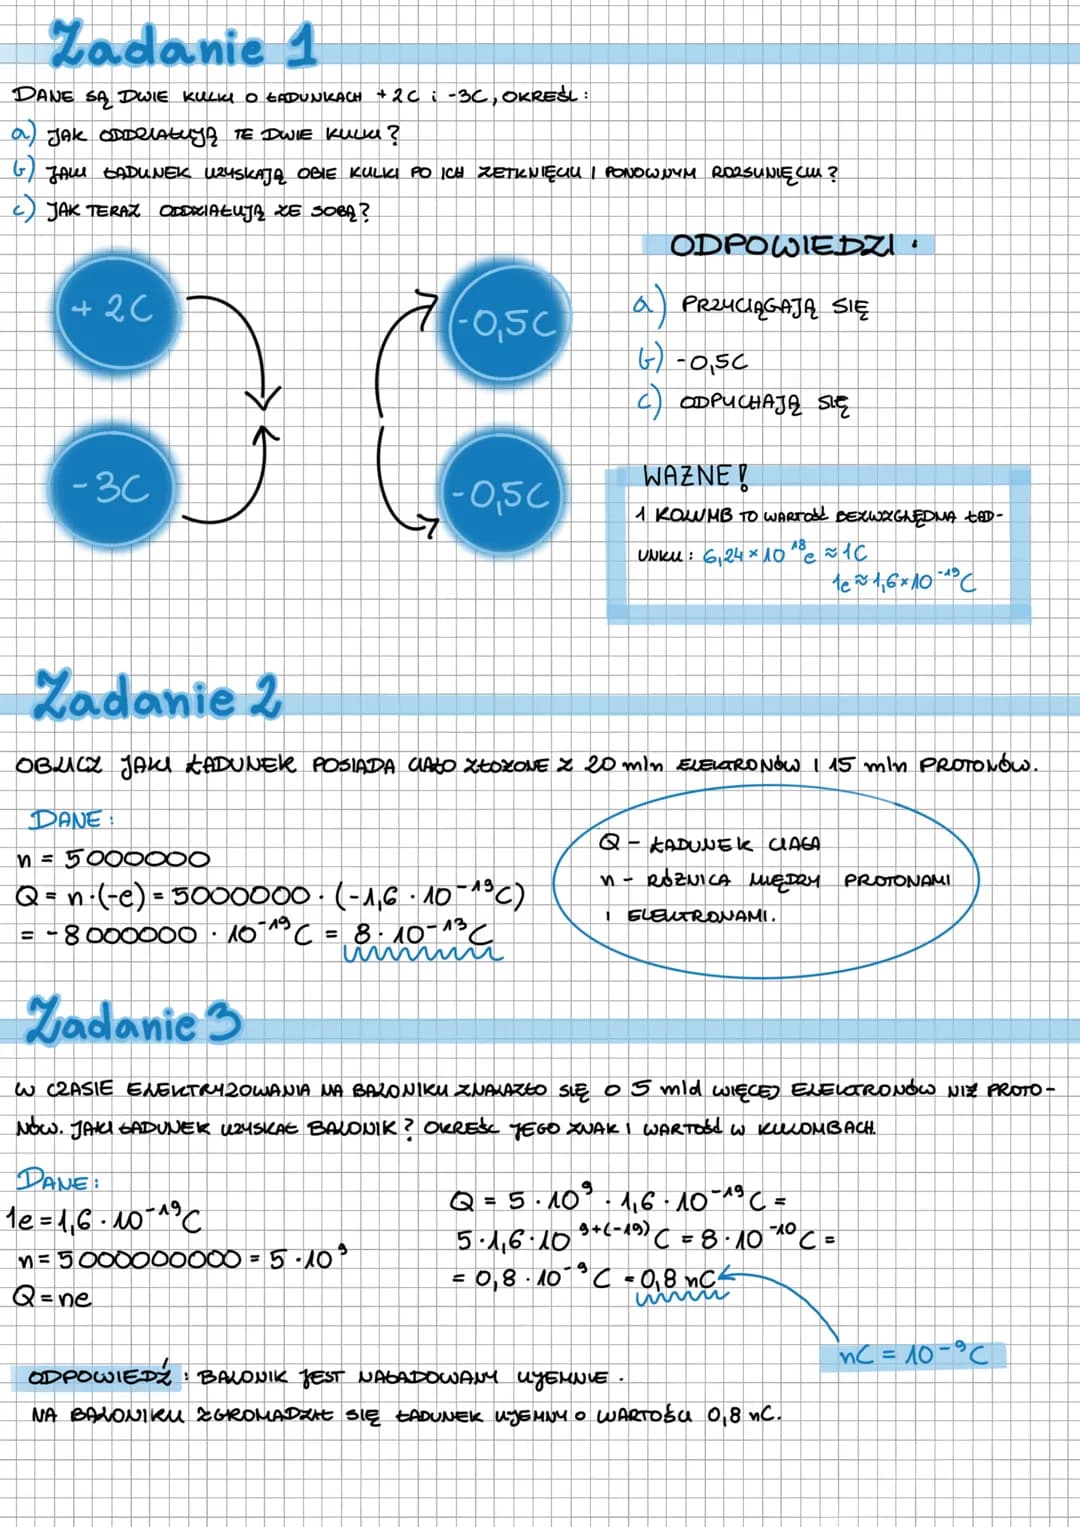 Zadanie 1
DANE SĄ DWIE KULKI O ŁADUNKACH +2C i -3C, OKREŚL:
a) JAK ODDZIAŁUJĄ TE DWIE KULKI?
b) JAKI ŁADUNEK UZYSKAJĄ OBIE KULKI PO ICH ZETKNIĘCIU I PONOWNYM ROZSUNIĘCIU?
c) JAK TERAZ ODDZIAŁUJĄ ZE SOBĄ?
ODPOWIEDZI:
+2C
-0,5C
a) PRZYCIĄGAJĄ SIĘ
b) -0,5C
c) ODPUCHAJĄ SIĘ
-3C
-0,5C
WAŻNE!
1 KOLUMB TO WARTOŚĆ BEZWZGLĘDNA ŁAD-
UNKU: 6,24×10^18 e ≈ 1C
1e ≈ 1,6×10^-19 C
Zadanie 2
OBLICZ JAKI ŁADUNEK POSIADA CIAŁO ZŁOŻONE Z 20 mln ELEKTRONÓW I 15 mln PROTONÓW.
DANE:
n = 5000000
Q = n·(-e) = 5000000 · (-1,6 · 10^-19 C)
= -8000000 · 10^-19 C = 8 · 10^-13 C
Q - ŁADUNEK CIAŁA
n - RÓŻNICA MIĘDZY PROTONAMI
I ELEKTRONAMI.
Zadanie 3
W CZASIE ELEKTRYZOWANIA NA BALONIKU ZNALAZŁO SIĘ O 5 mld WIĘCEJ ELEKTRONÓW NIŻ PROTO-
NÓW. JAKI ŁADUNEK UZYSKAŁ BALONIK? OKREŚL JEGO ZNAK I WARTOŚĆ W KULOMBACH.
DANE:
1e = 1,6 · 10^-19 C
n = 5000000000 = 5 · 10^9
Q = ne
Q = 5 · 10^9 · 1,6 · 10^-19 C =
5 · 1,6 · 10^9+(-19) C = 8 · 10^-10 C =
= 0,8 · 10^-9 C = 0,8 nC
nC = 10^-9 C
ODPOWIEDŹ: BALONIK JEST NAŁADOWANY UJEMNIE.
NA BALONIKU ZGROMADZIŁ SIĘ ŁADUNEK UJEMNY O WARTOŚCI 0,8 nC.